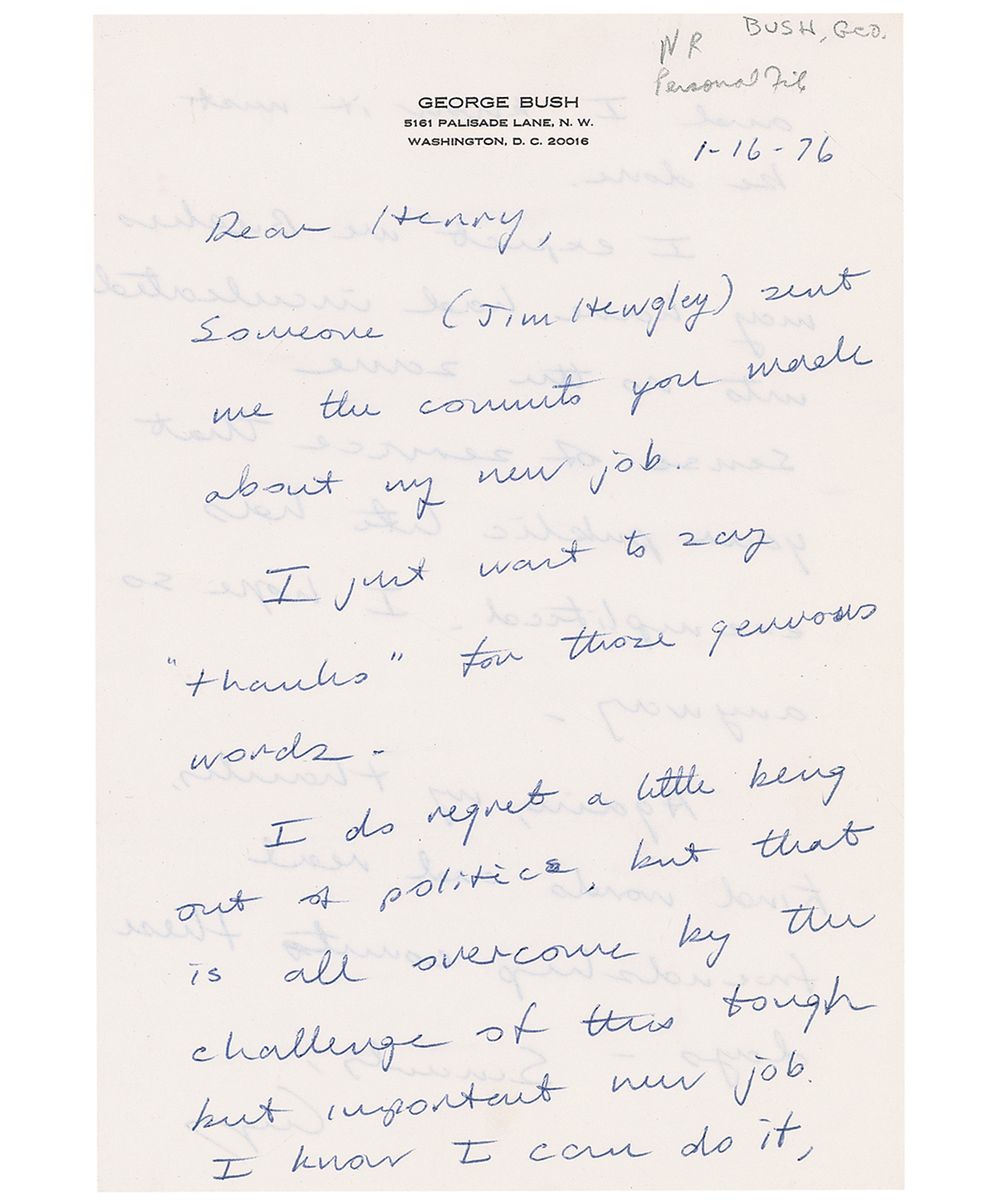 BUSH, GEO.
NR
Personal File
GEORGE BUSH
5161 PALISADE LANE, N. W.
WASHINGTON, D. C. 20016
1-16-76
Dear Henry,
Someone (Jim Hewgley) sent
me the comments you made
about my new job.
I just want to say
"thanks" for those generous
words -
I do regret a little being
out of politics, but that
is all overcome by the
challenge of this tough
but important new job.
I know I can do it,